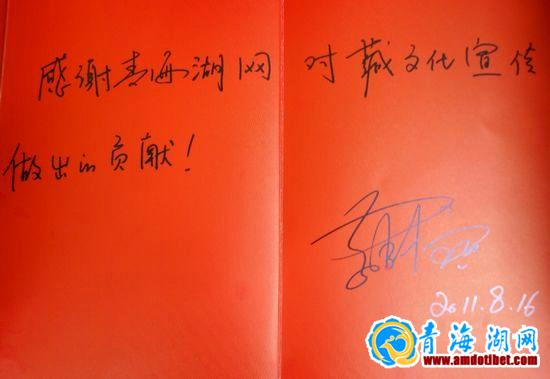 感谢青海湖网 对藏文化宣传
做出的贡献！
2011.8.16
青海湖网
www.amdotibet.com